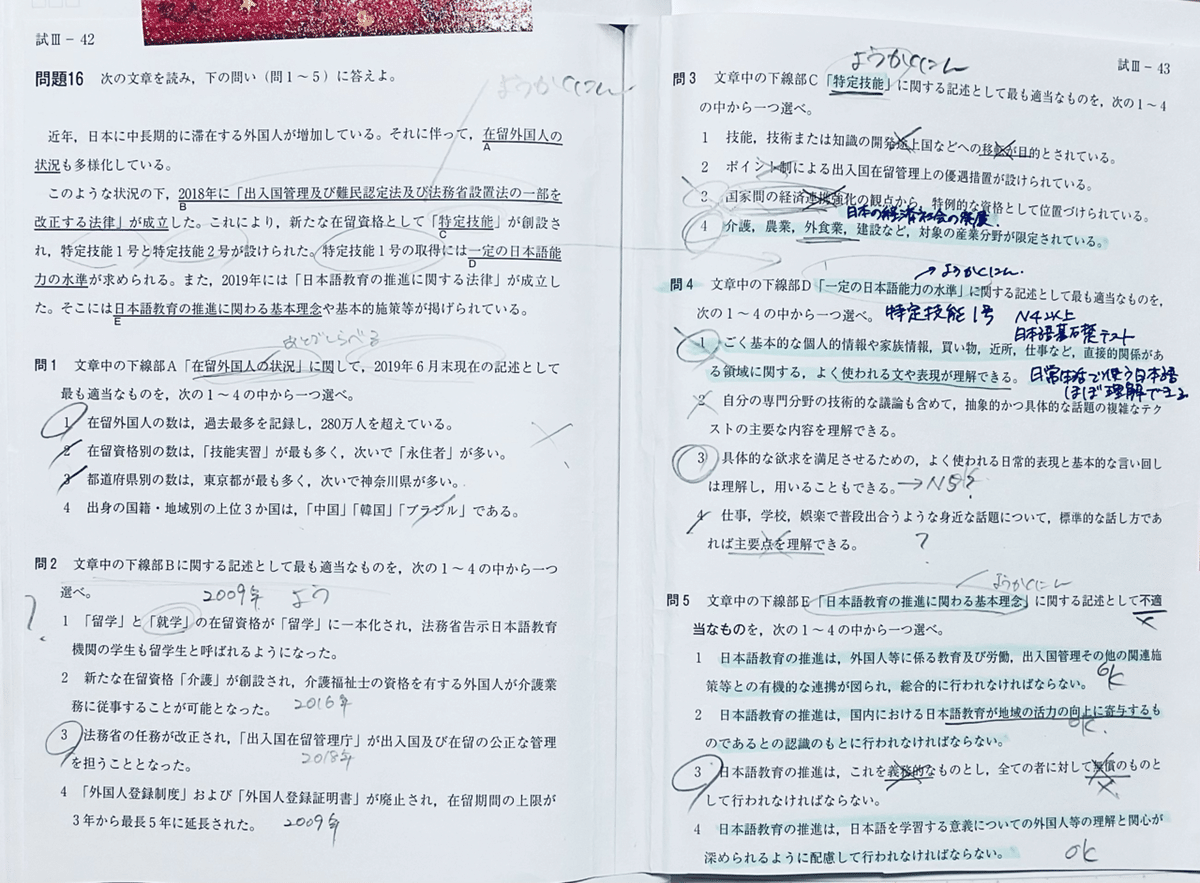 試Ⅲ－42
問題16 次の文章を読み，下の問い（問1～5）に答えよ。
ようかくにん
近年，日本に中長期的に滞在する外国人が増加している。それに伴って，在留外国人の
A
状況も多様化している。
このような状況の下，2018年に「出入国管理及び難民認定法及び法務省設置法の一部を
B
改正する法律」が成立した。これにより，新たな在留資格として「特定技能」が創設さ
C
れ，特定技能1号と特定技能2号が設けられた。特定技能1号の取得には一定の日本語能
D
力の水準が求められる。また，2019年には「日本語教育の推進に関する法律」が成立し
た。そこには日本語教育の推進に関わる基本理念や基本的施策等が掲げられている。
E
あとでしらべる
問1 文章中の下線部A「在留外国人の状況」に関して，2019年6月末現在の記述として
最も適当なものを，次の1～4の中から一つ選べ。
1 在留外国人の数は，過去最多を記録し，280万人を超えている。
2 在留資格別の数は，「技能実習」が最も多く，次いで「永住者」が多い。
3 都道府県別の数は，東京都が最も多く，次いで神奈川県が多い。
4 出身の国籍・地域別の上位3か国は，「中国」「韓国」「ブラジル」である。
問2 文章中の下線部Bに関する記述として最も適当なものを，次の1～4の中から一つ
選べ。
2009年 よう
?
1 「留学」と「就学」の在留資格が「留学」に一本化され，法務省告示日本語教育
機関の学生も留学生と呼ばれるようになった。
2 新たな在留資格「介護」が創設され，介護福祉士の資格を有する外国人が介護業
務に従事することが可能となった。 2016年
3 法務省の任務が改正され，「出入国在留管理庁」が出入国及び在留の公正な管理
を担うこととなった。 2018年
4 「外国人登録制度」および「外国人登録証明書」が廃止され，在留期間の上限が
3年から最長5年に延長された。 2009年
試Ⅲ－43
ようかくにん
問3 文章中の下線部C「特定技能」に関する記述として最も適当なものを，次の1～4
の中から一つ選べ。
1 技能，技術または知識の開発途上国などへの移転が目的とされている。
2 ポイント制による出入国在留管理上の優遇措置が設けられている。
3 国家間の経済連携強化の観点から，特例的な資格として位置づけられている。
日本の経済社会の発展．
4 介護，農業，外食業，建設など，対象の産業分野が限定されている。
→ようかくにん．
問4 文章中の下線部D「一定の日本語能力の水準」に関する記述として最も適当なものを，
次の1～4の中から一つ選べ。 特定技能1号 N4以上
日本語基礎テスト
1 ごく基本的な個人的情報や家族情報，買い物，近所，仕事など，直接的関係があ
る領域に関する，よく使われる文や表現が理解できる。 日常生活で使う日本語
ほぼ理解できる
2 自分の専門分野の技術的な議論も含めて，抽象的かつ具体的な話題の複雑なテク
ストの主要な内容を理解できる。
3 具体的な欲求を満足させるための，よく使われる日常的表現と基本的な言い回し
は理解し，用いることもできる。→N5?
4 仕事，学校，娯楽で普段出合うような身近な話題について，標準的な話し方であ
れば主要点を理解できる。 ?
ようかくにん
問5 文章中の下線部E「日本語教育の推進に関わる基本理念」に関する記述として不適
当なものを，次の1～4の中から一つ選べ。
1 日本語教育の推進は，外国人等に係る教育及び労働，出入国管理その他の関連施
策等との有機的な連携が図られ，総合的に行われなければならない。 ok
2 日本語教育の推進は，国内における日本語教育が地域の活力の向上に寄与するも
のであるとの認識のもとに行われなければならない。 ok．
3 日本語教育の推進は，これを義務的なものとし，全ての者に対して無償のものと
して行われなければならない。
4 日本語教育の推進は，日本語を学習する意義についての外国人等の理解と関心が
深められるように配慮して行われなければならない。 ok